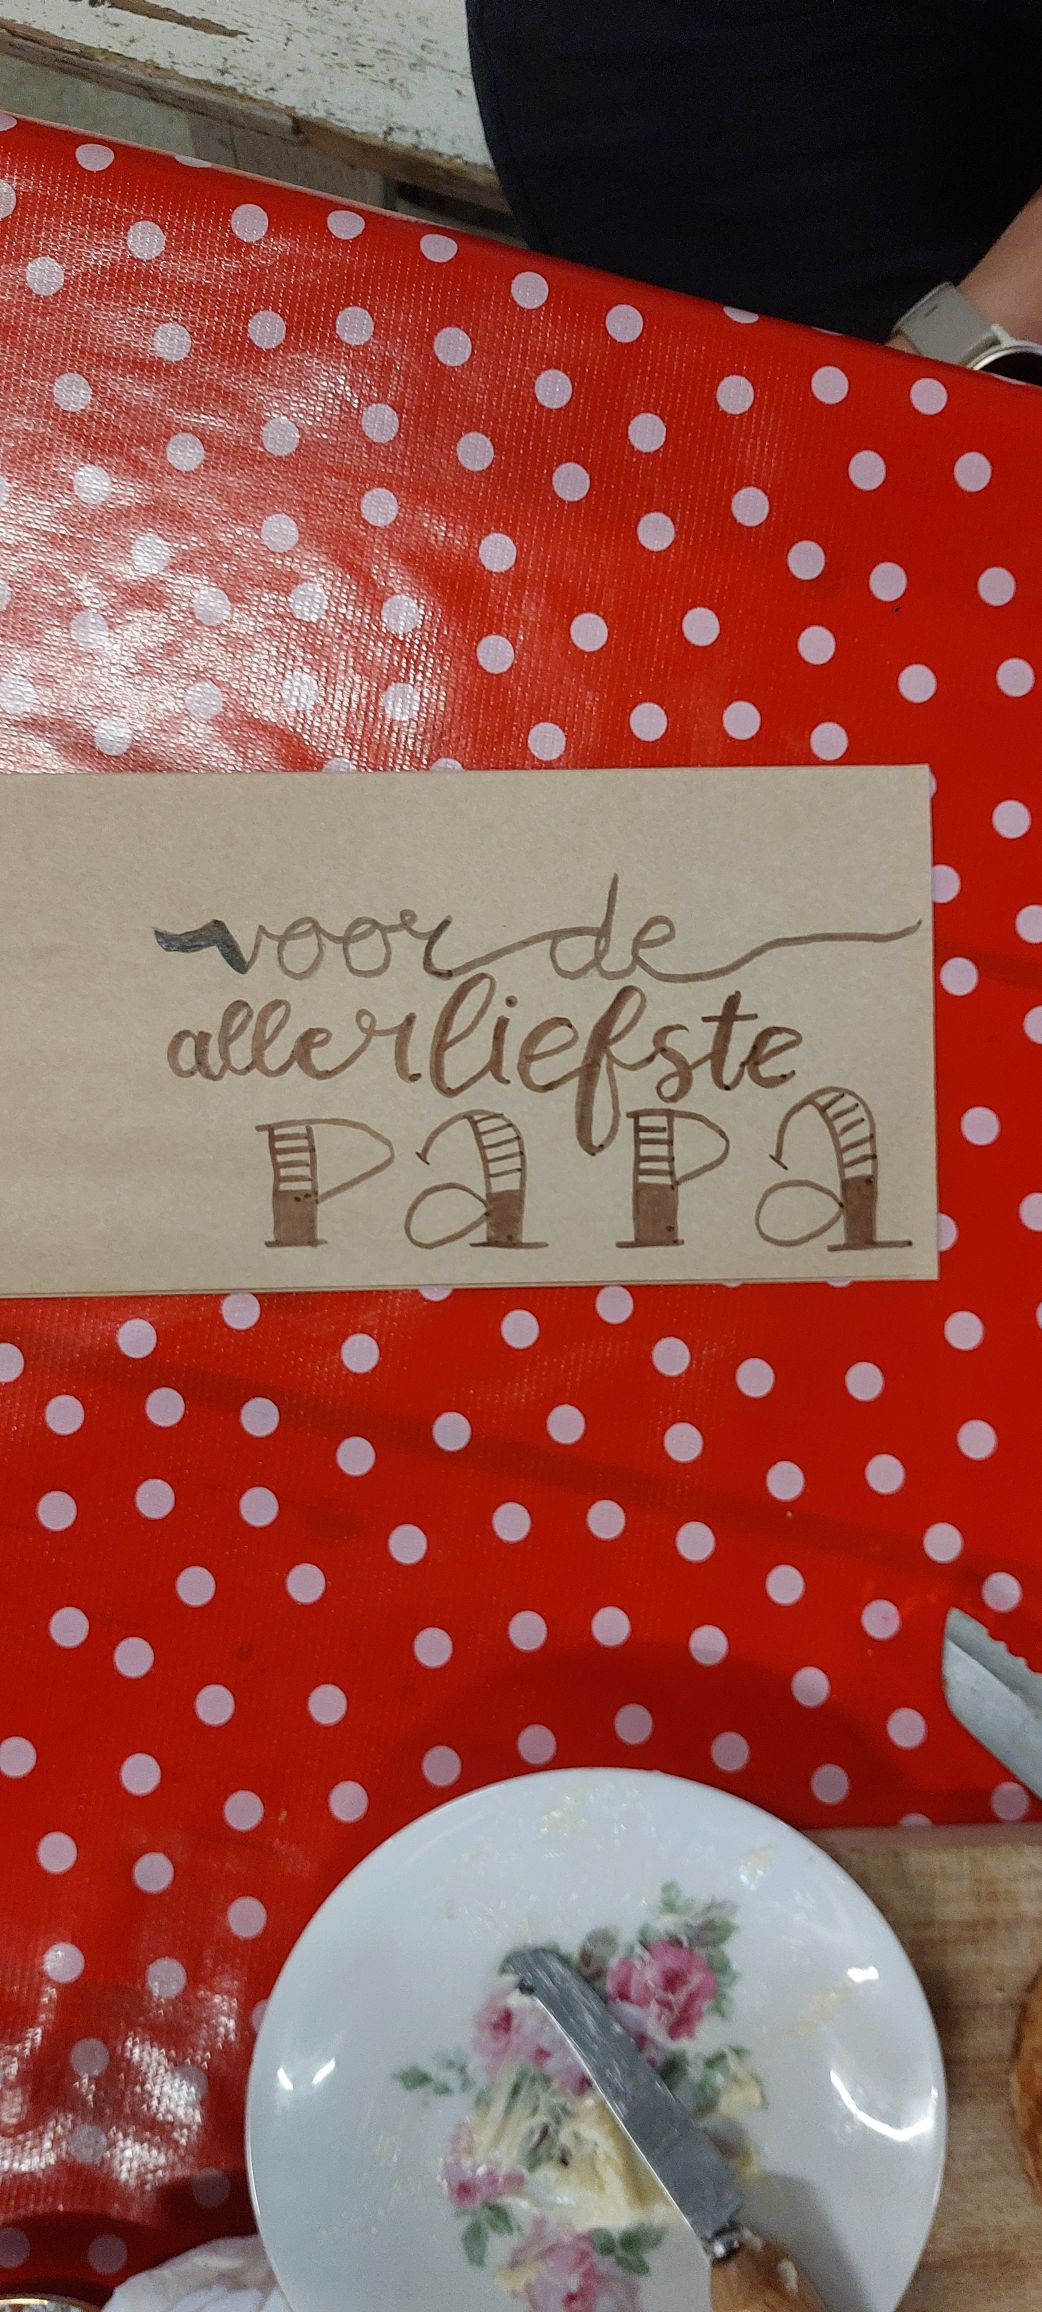 voor de
allerliefste
papa